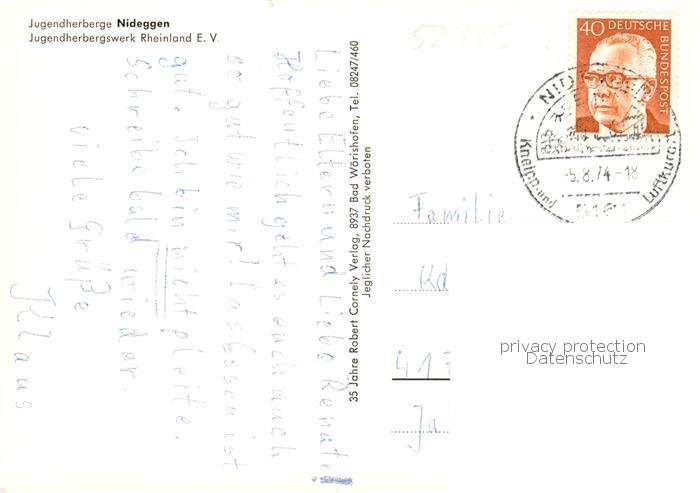 Jugendherberge Nideggen
Jugendherbergswerk Rheinland E. V.
Liebe Eltern und liebe Renate!
Hoffentlich geht es euch auch
so gut wie mir! Das Essen ist
gut. Ich bin nicht pleite.
Schreibe bald wieder.
viele Grüße
Klaus
35 Jahre Robert Cornely Verlag, 8937 Bad Wörishofen, Tel. 08247/460
Jeglicher Nachdruck verboten
40 DEUTSCHE BUNDESPOST
NIDEGGEN
-5.8.74-18
Kneipp- und Luftkurort
5168
Familie
Kd
417
Ja
privacy protection
Datenschutz